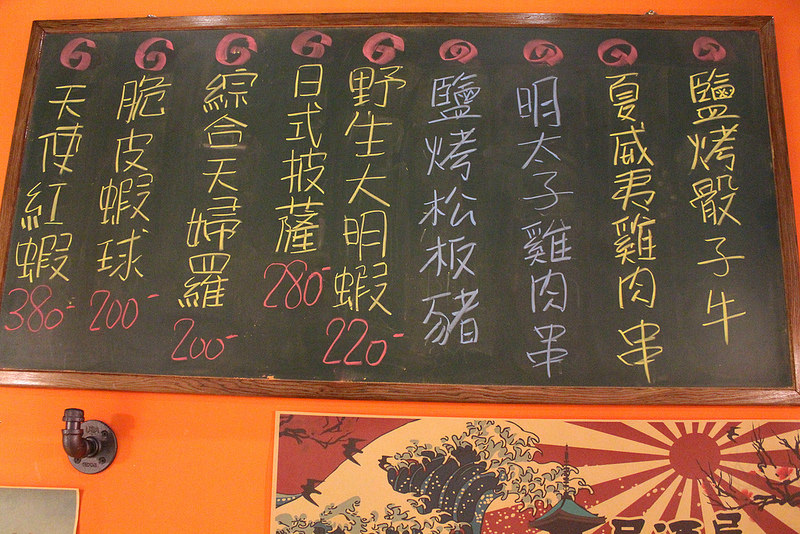 鹽烤骰子牛
夏威夷雞肉串
明太子雞肉串
鹽烤松板豬
野生大明蝦 220-
日式披薩 280-
綜合天婦羅 200-
脆皮蝦球 200-
天使紅蝦 380-
USA